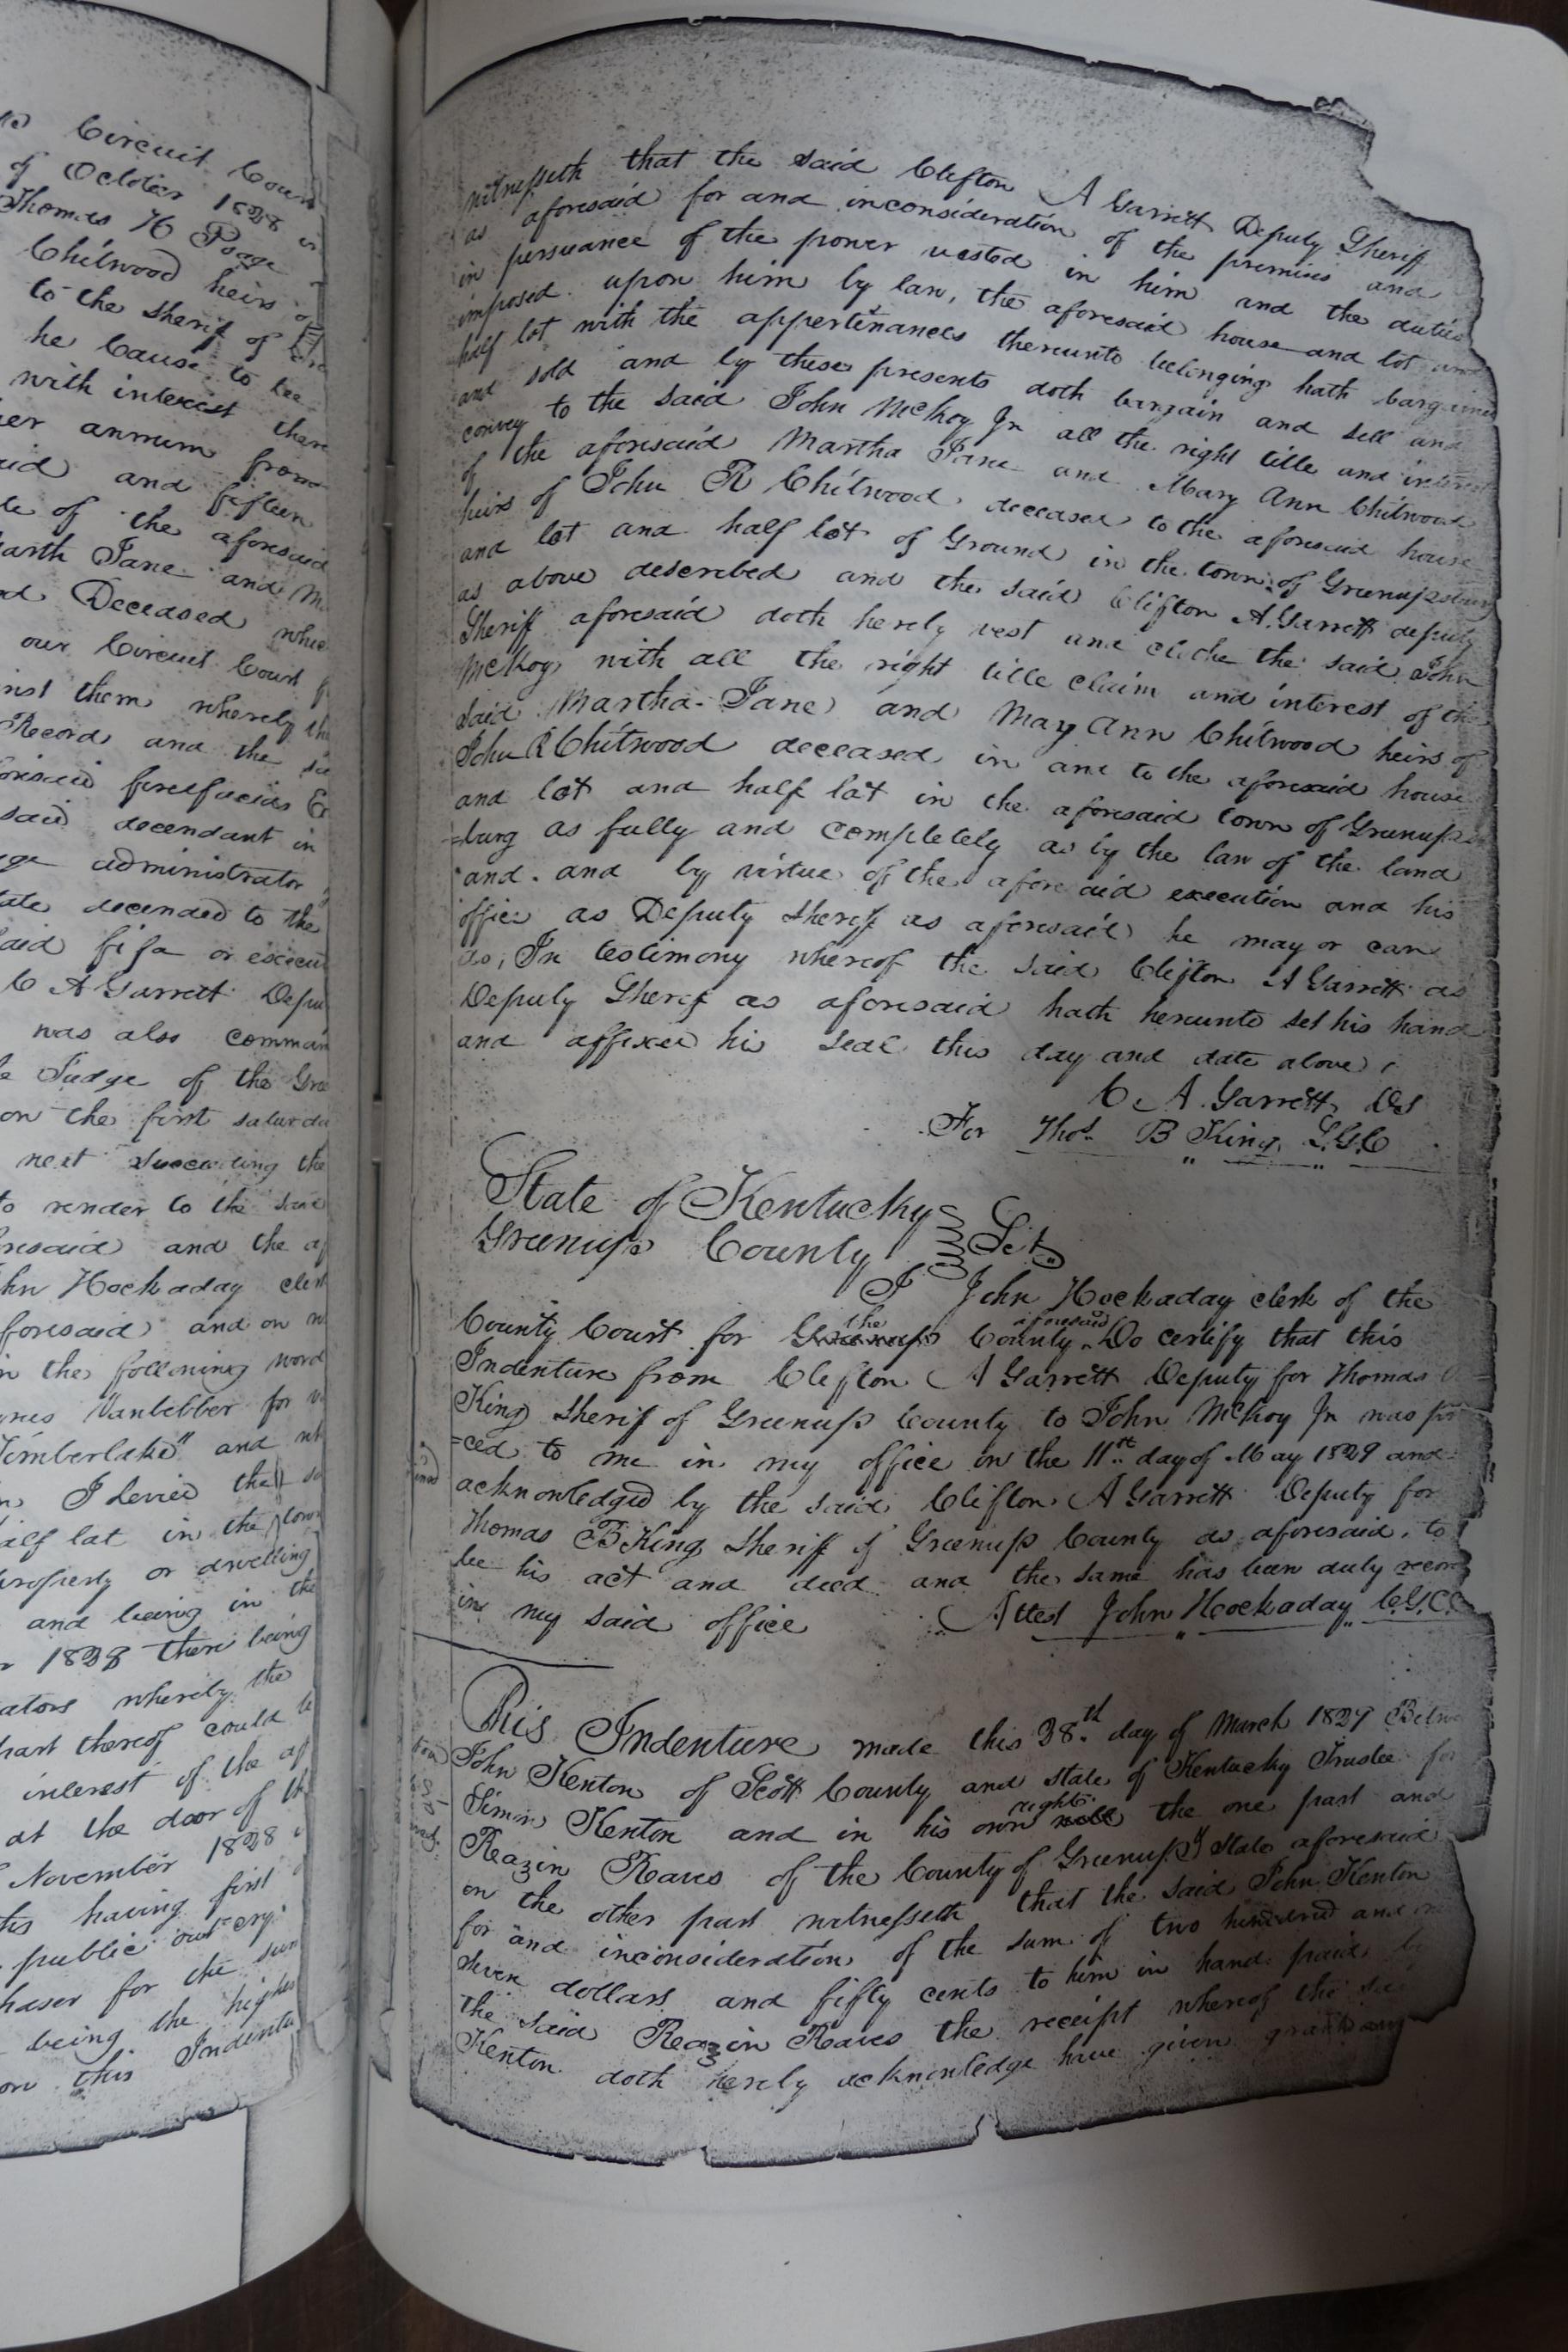 Circuit Cour
of October 1828 in
Thomas H Poage
Chitwood heirs of
to the Sherif of
he Cause to bee
with interest there
er annum from
aid and fifteen
te of the aforesaid
arth Jane and M
d Deceased whe
our Circuit Court
inst them whereby th
Record and the
foresaid firefacias
said decendant in
ge administrator
ate decended to the
aid fi fa or execu
C A Garrett Depu
was also comman
e Judge of the Gre
on the first saturda
next succeeding the
to render to the said
resaid and the af
hn Hockaday clerk
foresaid and on
in the following word
Vanbebber for
Timberlake" and
I Levied the
alf lat in the town
property or dwelling
and being in the
1828 there being
ators whereby the
part thereof could b
interest of the af
at the door of th
November 1828
his having first
public out cry
haser for the sum
being the highes
on this Indentu
witnesseth that the said Clifton A Garrett Deputy Sheriff
as aforesaid for and inconsideration of the premises and
in persuance of the power vested in him and the duties
imposed upon him by law, the aforesaid house and lot and
half lot with the appertinances thereunto belonging hath bargained
and sold and by these presents doth bargain and sell and
convey to the said John McKoy Jr all the right title and interest
of the aforesaid Martha Jane and Mary Ann Chitwood
heirs of John R Chitwood deceased to the aforesaid house
and lot and half lot of Ground in the town of Greenupsburg
as above described and the said Clifton A. Garrett deputy
Sheriff aforesaid doth hereby vest and clothe the said John
McKoy with all the right title claim and interest of the
said Martha Jane and May Ann Chitwood heirs of
John R Chitwood deceased in and to the aforesaid house
and lot and half lat in the aforesaid town of Greenups
=burg as fully and completely as by the law of the land
and and by virtue of the aforesaid execution and his
office as Deputy Sheriff as aforesaid he may or can
do, In testimony whereof the said Clifton A Garrett as
Deputy Sheref as aforesaid hath hereunto set his hand
and affixed his seal this day and date above
C A. Garrett, DS
For Thos. B King, S.G.C
State of Kentucky
Greenup County Sct.
I John Hockaday clerk of the
County Court for the County aforesaid Do certify that this
Indenture from Clifton A Garrett Deputy for Thomas
King Sherif of Greenup County to John McKoy Jr was pro
=ced to me in my office on the 11th day of May 1829 and
acknowledged by the said Clifton A Garrett Deputy for
Thomas B King Sheriff of Greenup County as aforesaid, to
be his act and deed and the same has been duly recor
in my said office Attest John Hockaday C.G.C.C
This Indenture made this 28th day of March 1829 Betwe
John Kenton of Scott County and state of Kentucky Trustee for
Simon Kenton and in his own right the one part and
Reazin Reaves of the County of Greenup & State aforesaid
on the other part witnesseth that the said John Kenton
for and inconsideration of the sum of two hundred and
seven dollars and fifty cents to him in hand paid by
the said Reazin Reaves the receipt whereof the said
Kenton doth hereby acknowledge have given grant